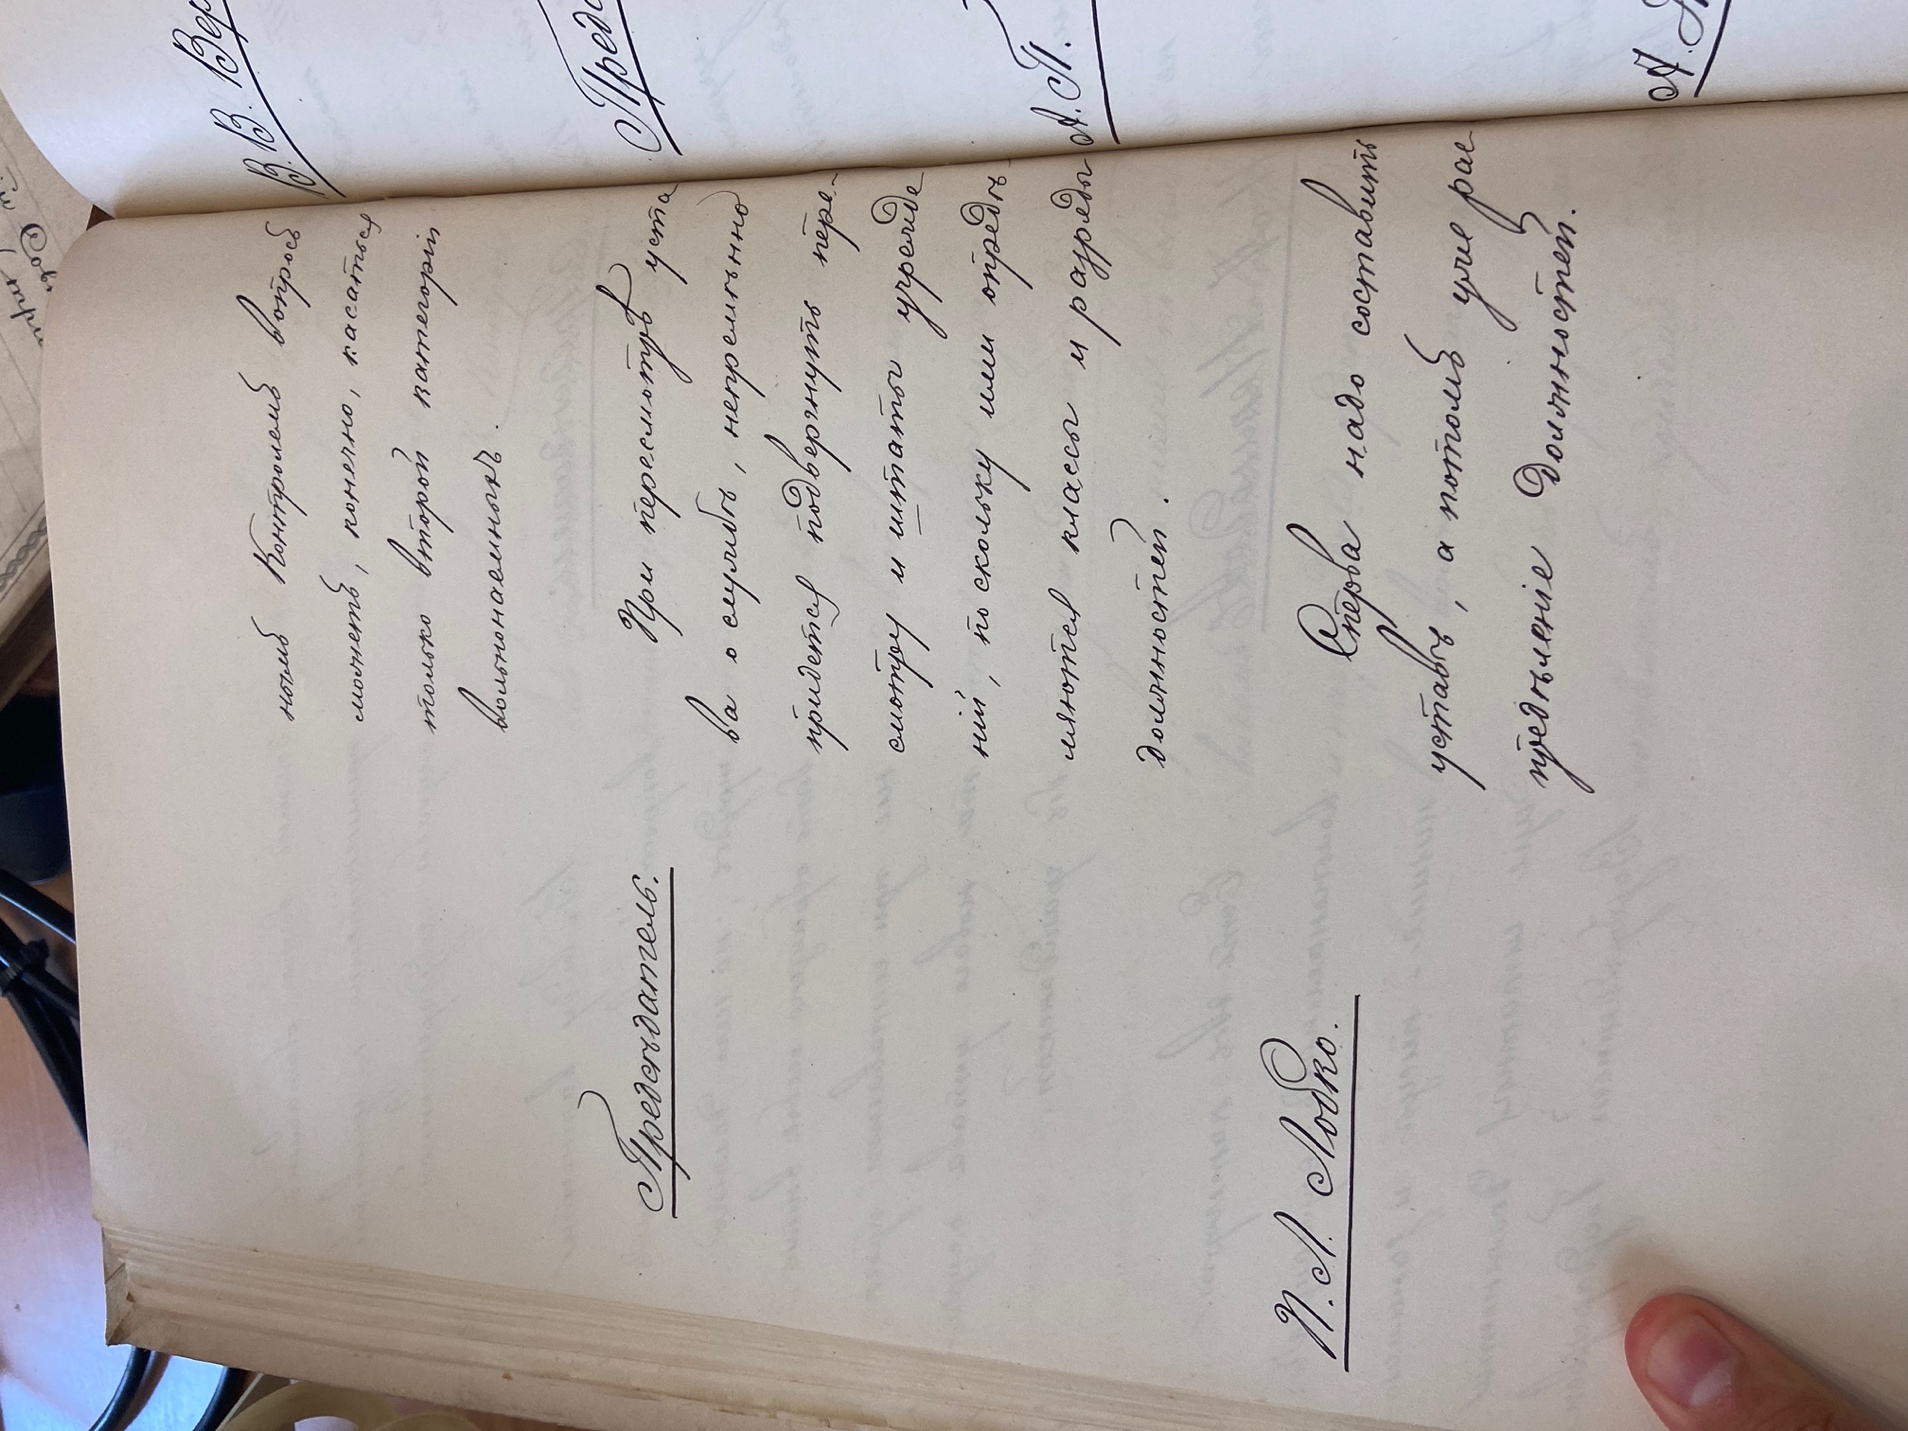 нымъ Контролемъ вопросъ
можетъ, конечно, касаться
только второй категорiи
вольнонаемныхъ.
Предсѣдатель.
При пересмотрѣ уста
ва о службѣ, непремѣнно
придется подвергнуть пере-
смотру и штаты учрежде
нiй, по скольку ими опредѣ
ляются классы и разряды
должностей.
П. Л. Лобко.
Сперва надо составить
уставъ, а потомъ уже рас
предѣленiе должностей.
В. В. Вер
Предс
А. П.
А.